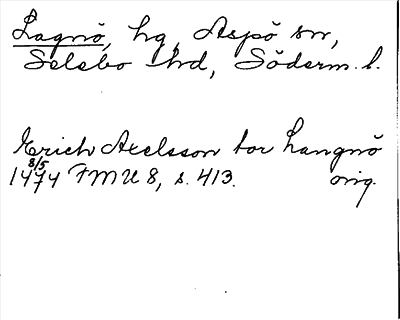 Lagnö, hg, Aspö sn,
Selebo hd, Söderm. l.
Erich Axelsson tor Langnö
8/5
1474 FMU 8, s. 413. orig.